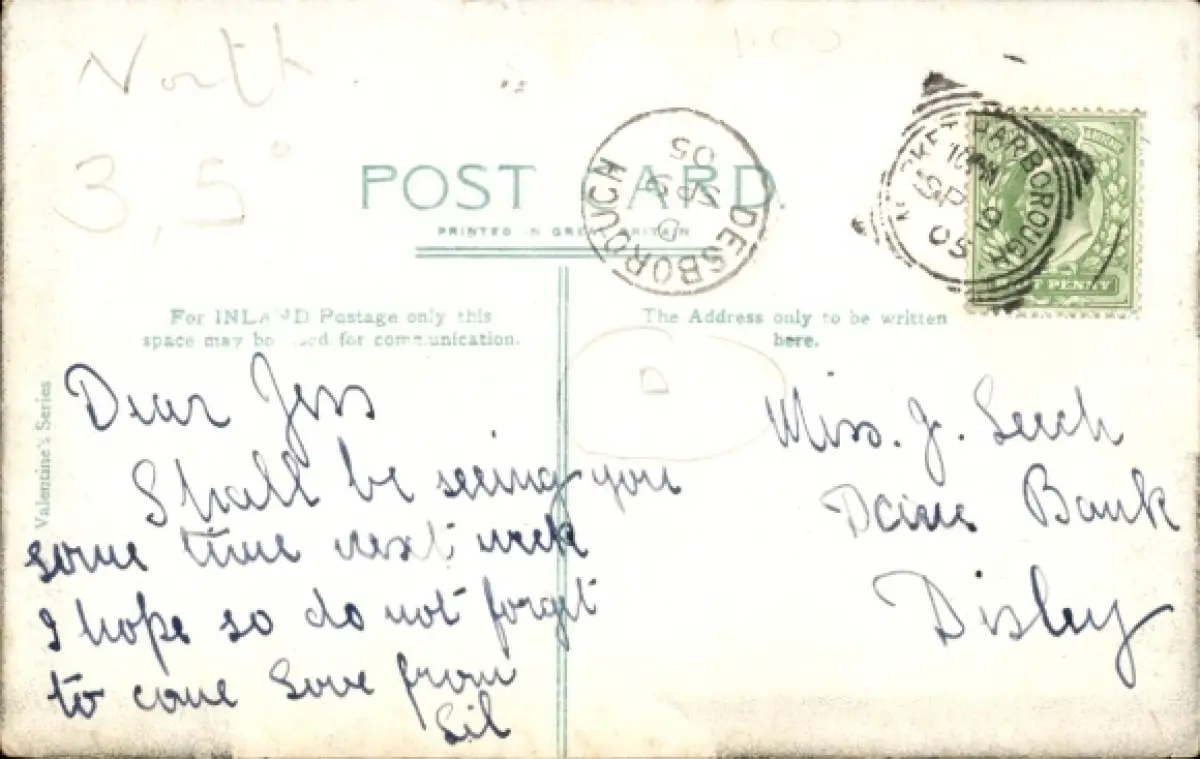 North
3,5
POST CARD
PRINTED IN GREAT BRITAIN
DESBOROUGH
D
SP 9
05
MARKET HARBOROUGH
10 PM
SP 10
05
HALF PENNY
For INLAND Postage only this
space may be used for communication.
The Address only to be written
here.
Valentine's Series
D
Dear Jess
Shall be seeing you
some time next week
I hope so do not forget
to come Love from
Lil
Miss. J. Leech
Bank
Disley